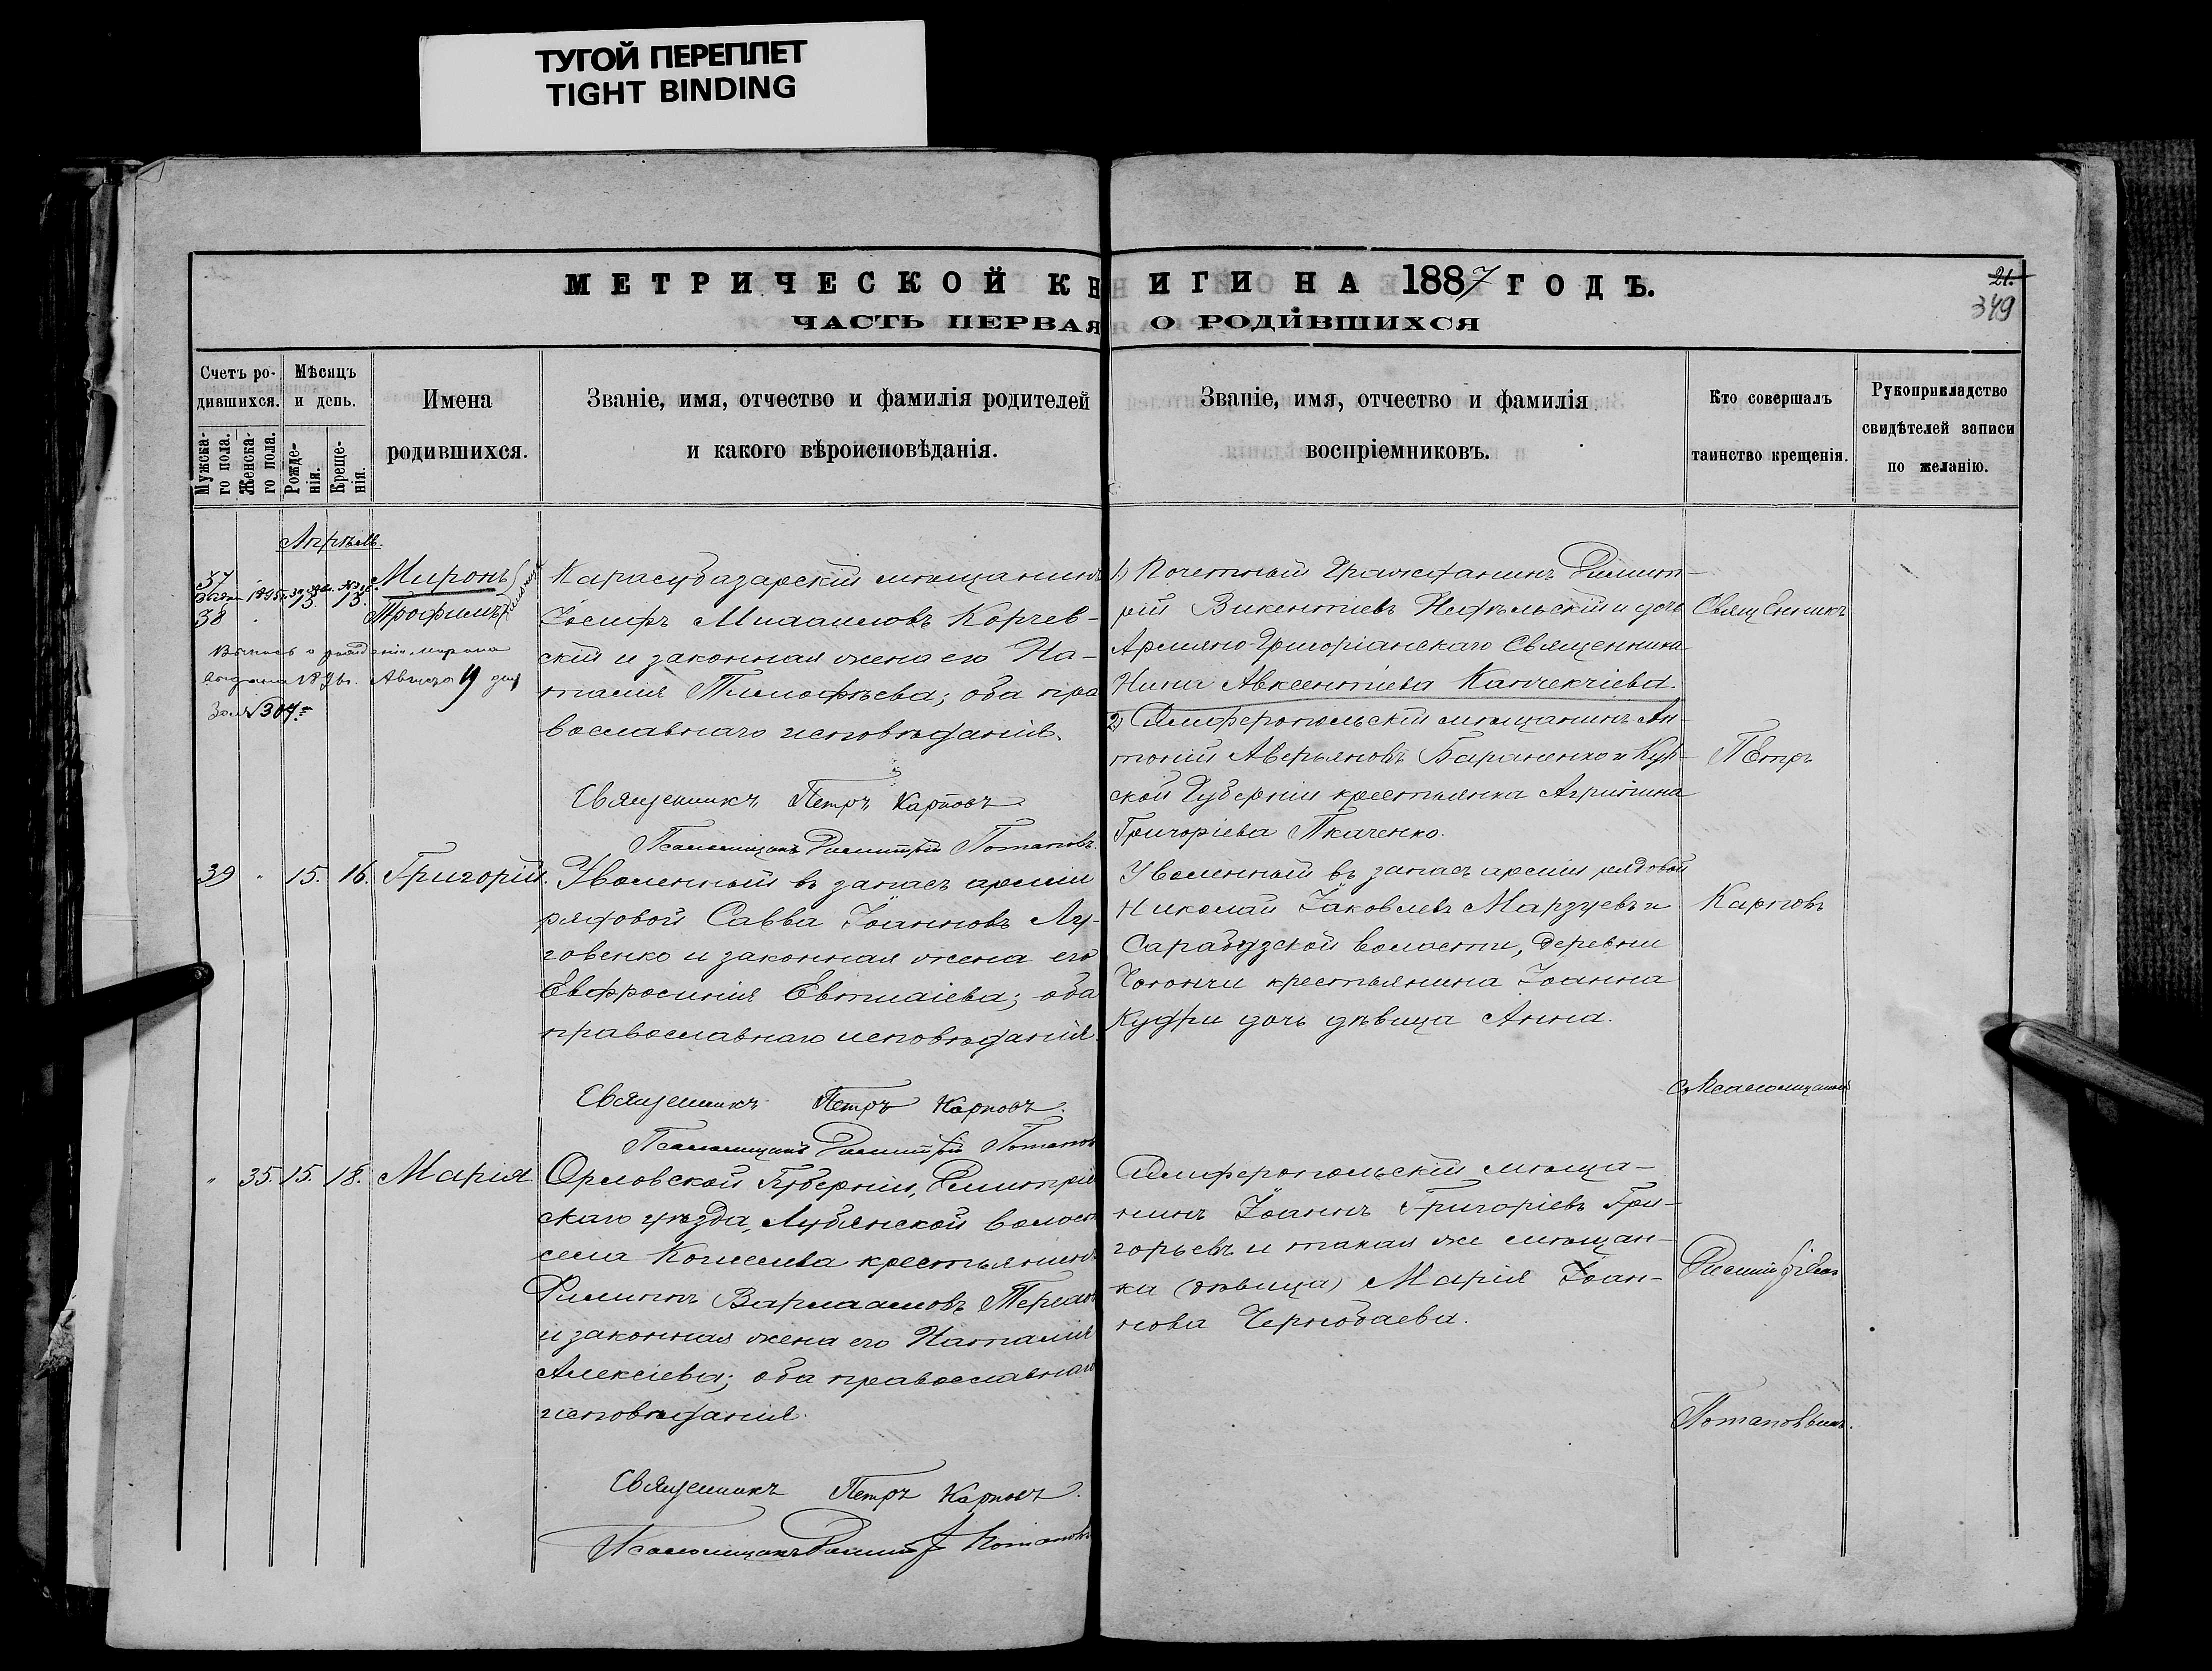 ТУГОЙ ПЕРЕПЛЕТ
TIGHT BINDING
МЕТРИЧЕСКОЙ КНИГИ НА 1887 ГОДЪ.
ЧАСТЬ ПЕРВАЯ О РОДИВШИХСЯ
21.
349
Счетъ ро-
дившихся.
Мужска-
го пола.
Женска-
го пола.
Мѣсяцъ
и день.
Рожде-
нія.
Креще-
нія.
Имена
родившихся.
Званіе, имя, отчество и фамилія родителей
и какого вѣроисповѣданія.
Званіе, имя, отчество и фамилія
воспріемниковъ.
Кто совершалъ
таинство крещенія.
Рукоприкладство
свидѣтелей записи
по желанію.
Апрѣль.
37
38
13. 13.
Миронъ
Трофимъ
Выпись о рожденіи Мирона
Августа 19 дня
За № 304.
Карасубазарскій мѣщанинъ
Іосифъ Михаиловъ Корчев-
скій и законная жена его На-
талія Тимофѣева; оба пра
вославнаго исповѣданія.
Священникъ Петръ Карповъ
Псаломщикъ Димитрій Потаповъ.
1) Почетный Гражданинъ Димит-
рій Викентіевъ и дочь
Армяно-Григоріанскаго Священника
Нина Авксентіева
2) Симферопольскій мѣщанинъ Ан-
тоній Аверьяновъ Бараненко и Кур-
ской Губерніи крестьянка Агрипина
Григоріева Ткаченко.
Священникъ
Петръ
Карповъ
съ Псаломщикомъ
Димитріемъ
Потаповымъ.
39 " 15. 16. Григорій.
Уволенный въ запасъ арміи
рядовой Савва Іоанновъ Лу-
говенко и законная жена его
Евфросинія Евтихіева; оба
православнаго исповѣданія.
Священникъ Петръ Карповъ.
Псаломщикъ Димитрій Потаповъ
Уволенный въ запасъ арміи рядовой
Николай Іаковлевъ и
Сарабузской волости, деревни
крестьянина Іоанна
Кудри дочь дѣвица Анна.
" 35. 15. 18. Марія
Орловской Губерніи, Димитров
скаго уѣзда, Лубянской волост
села крестьянинъ
Филиппъ Варлаамовъ
и законная жена его Наталія
Алексіева; оба православнаго
исповѣданія.
Священникъ Петръ Карповъ.
Псаломщикъ Димитрій Потаповъ
Симферопольскій мѣща-
нинъ Іоаннъ Григоріевъ Гри-
горьевъ и такая же мѣщан-
ка (дѣвица) Марія Іоан-
нова Чернобаева.